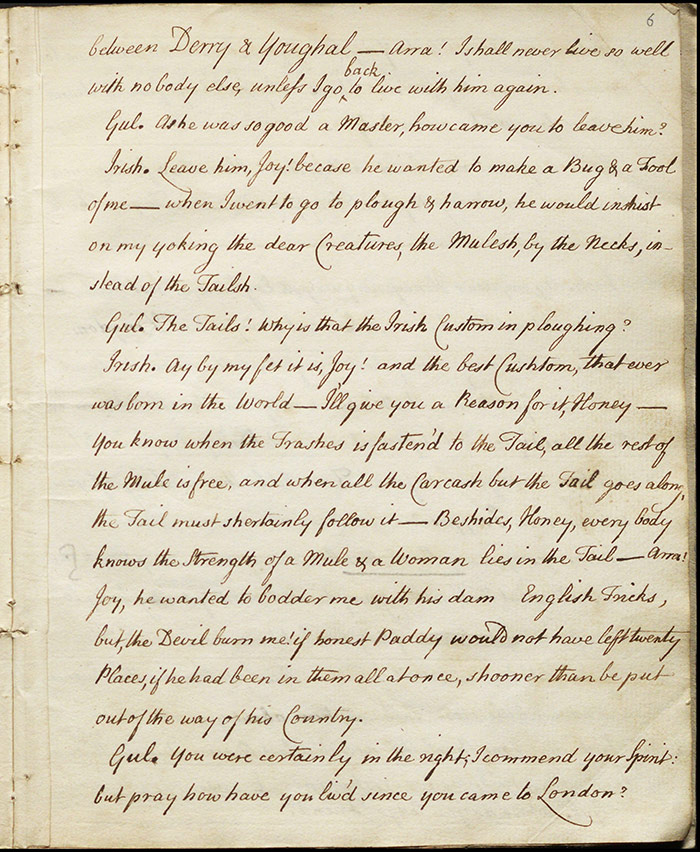 6
between Derry & Youghal — Arra! I shall never live so well
back
with nobody else, unless I go ^ to live with him again.
Gul. As he was so good a Master, how came you to leave him?
Irish. Leave him, Joy! becase he wanted to make a Bug & a Fool
of me — when I went to go to plough & harrow, he would inshist
on my yoking the dear Creatures, the Mulesh, by the Necks, in-
stead of the Tailsh.
Gul. The Tails! Why is that the Irish Custom in ploughing?
Irish. Ay by my fet it is, Joy! and the best Cushtom, that ever
was born in the World — I'll give you a Reason for it, Honey —
You know when the Trashes is fasten'd to the Tail, all the rest of
the Mule is free, and when all the Carcash but the Tail goes along,
the Tail must shertainly follow it — Beshides, Honey, every body
knows the Strength of a Mule & a Woman lies in the Tail — Arra!
Joy, he wanted to bodder me with his dam English Tricks,
but, the Devil burn me! if honest Paddy would not have left twenty
Places, if he had been in them all at once, shooner than be put
out of the way of his Country.
Gul. You were certainly in the right; I commend your Spirit:
but pray how have you liv'd since you came to London?